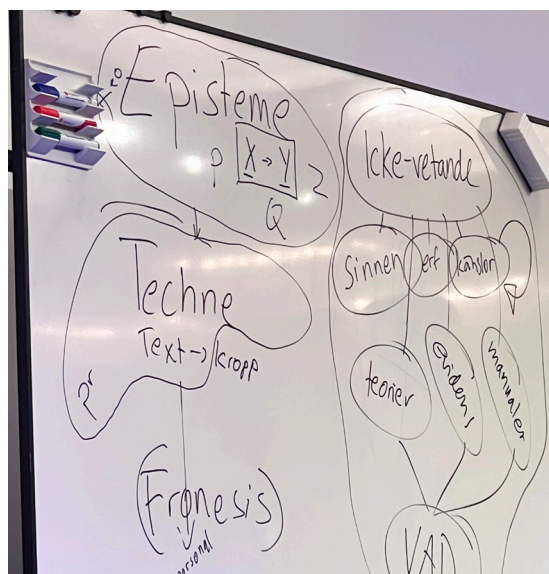 Episteme
P X → Y Z
Q
Techne
Text → kropp
Pr
(Fronesis)
Icke-vetande
Sinnen erf känslor
teorier evidens manualer
VAD